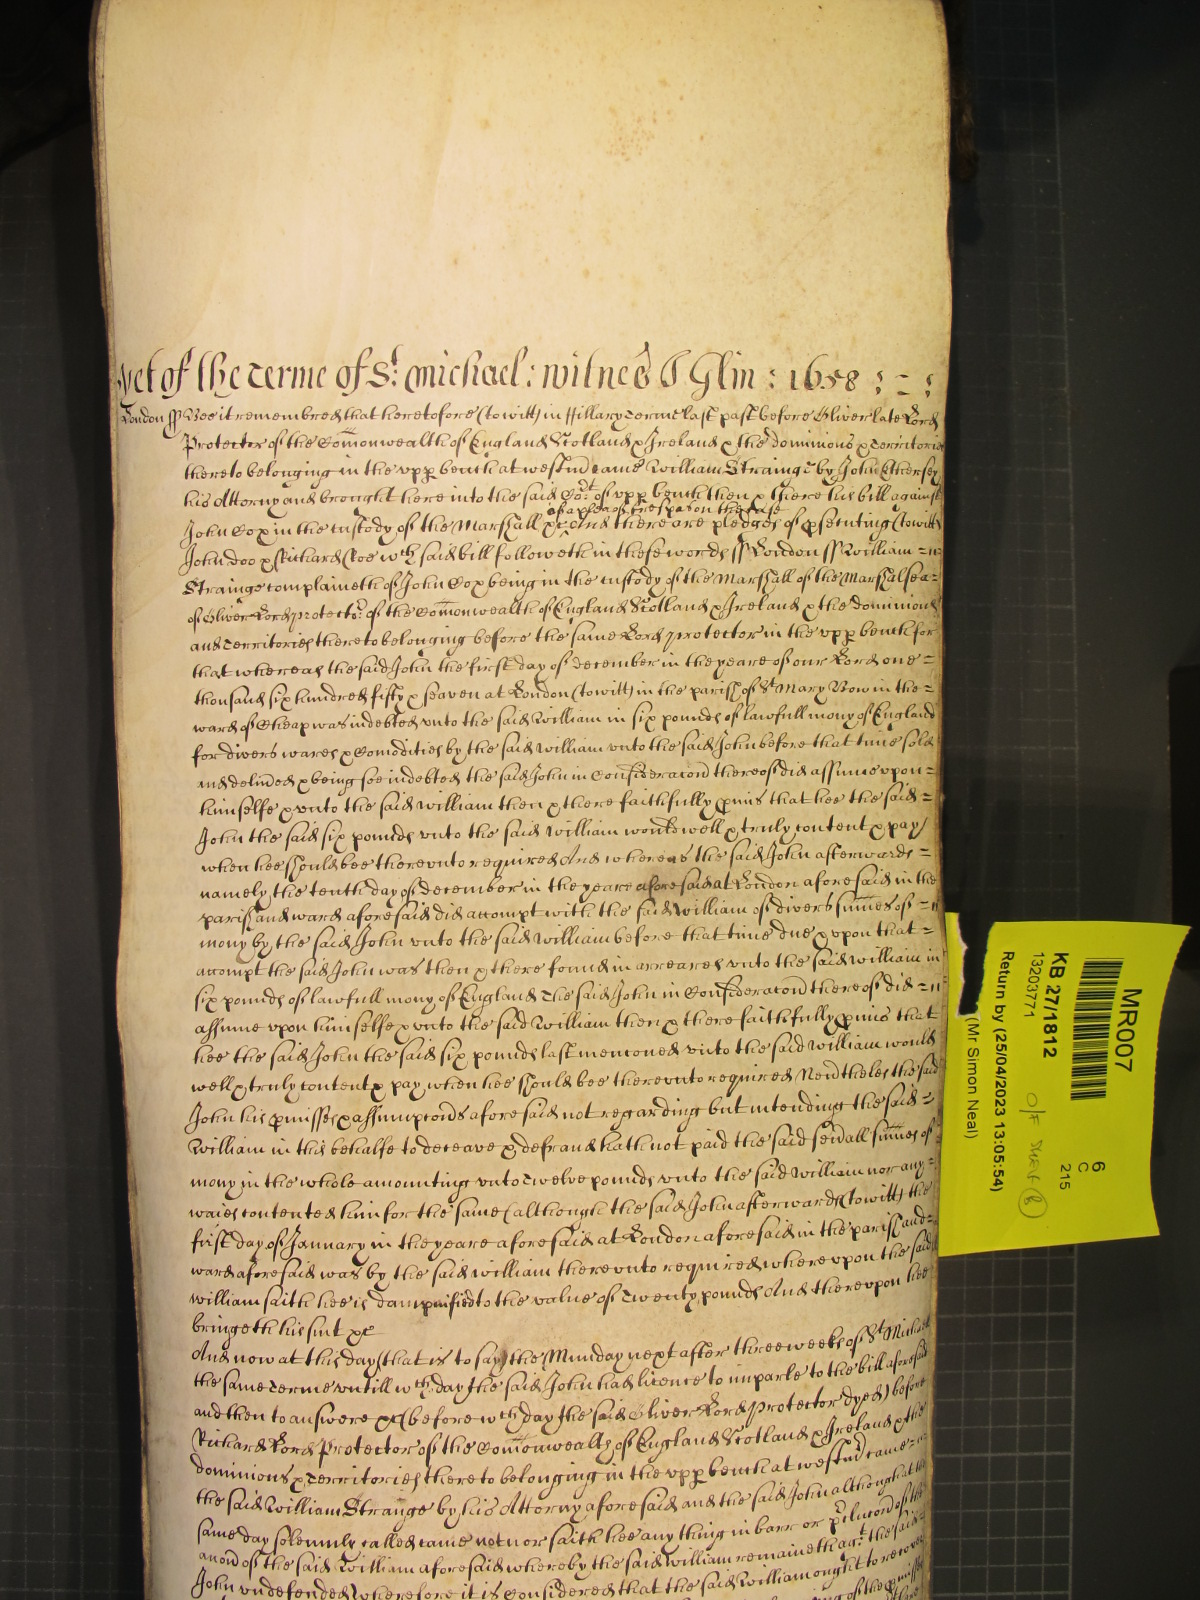 Yet of the terme of St. Michael: witnes J Glin: 1658
London ss Bee it remembred that heretofore (to witt) in Hillary Terme last past before Oliver late Lord
Protector of the Comonwealth of England Scotland & Ireland & the dominions & Territories
thereto belonging in the upp bench at westmr came William Strainge by John Athersey
his Attorny and brought here into the said Cort of upp bench then & there his bill against
of a plea of trespas on the case
John Cox in the custody of the Marshall &c And there are pledges of psecuting (to witt)
John Doo & Richard Roe wch said bill followeth in these words ss London ss William
Strainge complaineth of John Cox being in the custody of the Marshall of the Marshalsea
of Oliver Lord protector of the Comonwealth of England Scotland & Ireland & the dominions
and Territories thereto belonging before the same Lord protector in the upp bench for
that whereas the said John the first day of December in the yeare of our Lord one
thousand six hundred fifty & seaven at London (to witt) in the parish of St Mary Bow in the
ward of Cheap was indebted unto the said William in six pounds of lawfull mony of England
for divers wares & Comodities by the said William unto the said John before that time sold
and delived & being soe indebted the said John in Consideracon thereof did assume upon
himselfe & unto the said william then & there faithfully pmis that hee the said
John the said six pounds unto the said William would well & truly content & pay
when hee should bee thereunto required And whereas the said John afterwards
namely the tenth day of December in the yeare aforesaid at London aforesaid in the
parish and ward aforesaid did accompt with the said William of divers sumes of
mony by the said John unto the said William before that time due & upon that
accompt the said John was then & there found in arreares unto the said William in
six pounds of lawfull mony of England The said John in Consideracon thereof did
assume upon himselfe & unto the said William then & there faithfully pmis that
hee the said John the said six pounds last menconed unto the said William would
well & truly content & pay when hee should bee thereunto required Nevtheles the said
John his pmisses & assumptons aforesaid not regarding but intending the said
William in this behalfe to deceave & defraud hath not paid the said sevall sumes of
mony in the whole amounting unto Twelve pounds unto the said William nor any
waies contented him for the same (although the said John afterwards (to witt) the
first day of January in the yeare aforesaid at London aforesaid in the parish and
ward aforesaid was by the said William thereunto required) whereupon the said
William saith hee is dampnified to the value of Twenty pounds And thereupon hee
bringeth his suit &c
And now at this day (that is to say) the Munday next after three weeks of St Michael
the same Terme untill wch day the said John had licence to imparle to the bill aforesaid
and then to answere &c (before wch day the said Oliver Lord Protector dyed) before
Richard Lord Protector of the Comonwealth of England Scotland & Ireland & the
dominions & Territories thereto belonging in the upp bench at westmr came
the said William Strange by his Attorny aforesaid and the said John although at the
same day solemnly called came not nor saith hee any thing in barr or pclucon of the
accon of the said William aforesaid whereby the said William remaineth agt the said
John undefended Wherefore it is Considered that the said William ought to recover
MR007
KB 27/1812
13203771
Return by (25/04/2023 13:05:54)
(Mr Simon Neal)
6
C
215